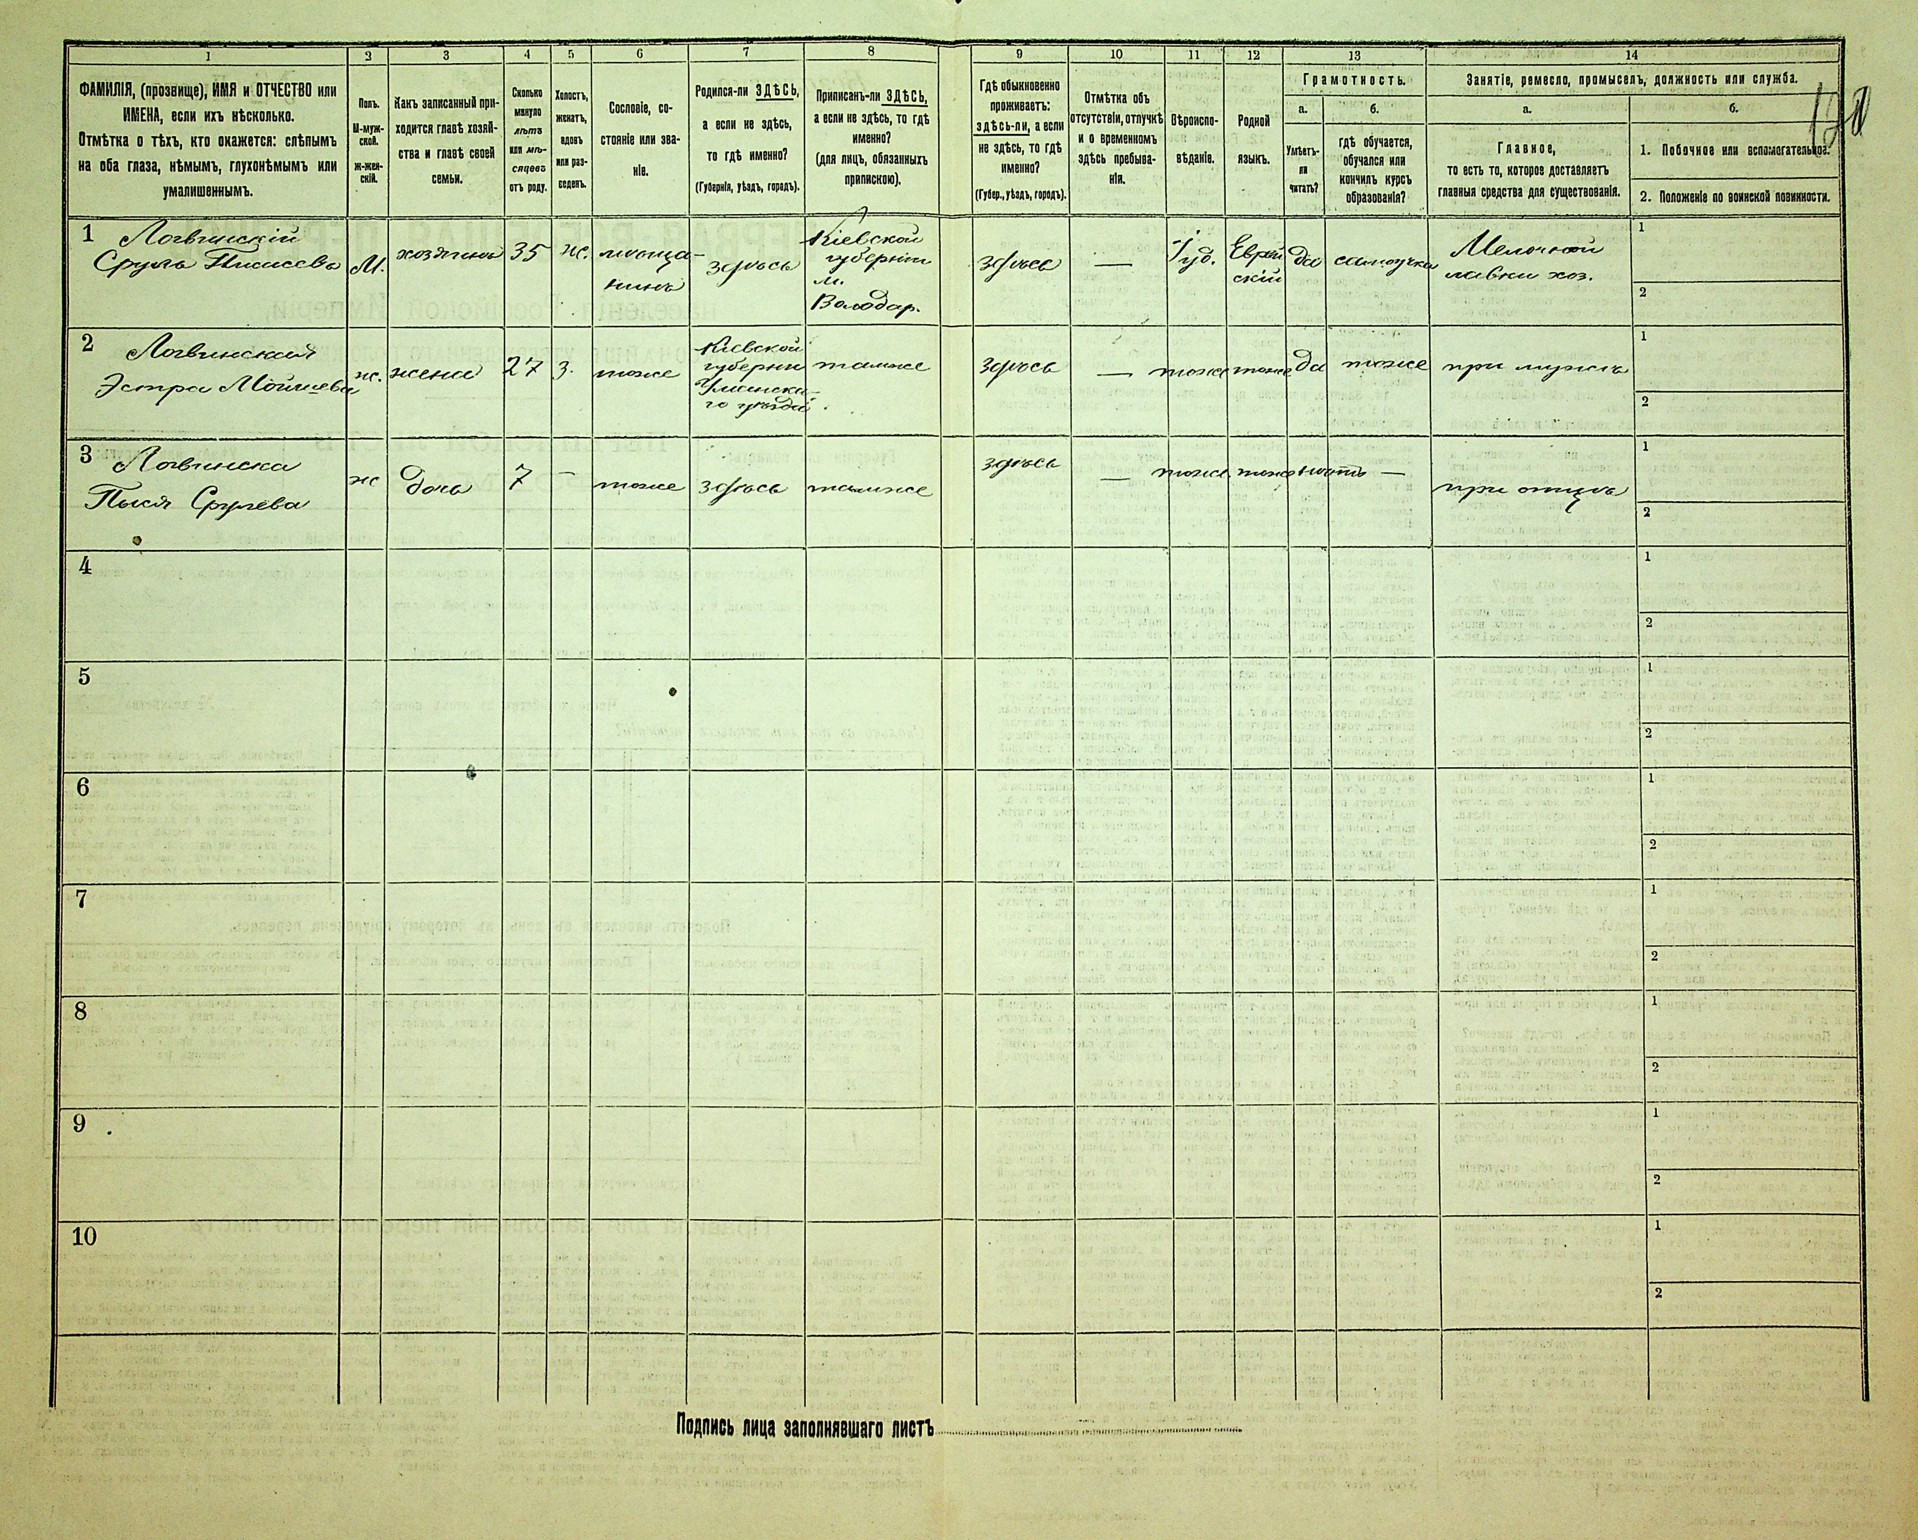 1 2 3 4 5 6 7 8 9 10 11 12 13 14
ФАМИЛІЯ, (прозвище), ИМЯ и ОТЧЕСТВО или
ИМЕНА, если ихъ нѣсколько.
Отмѣтка о тѣхъ, кто окажется: слѣпымъ
на оба глаза, нѣмымъ, глухонѣмымъ или
умалишеннымъ.
Полъ.
М-муж-
ской.
ж-жен-
скій.
Какъ записанный при-
ходится главѣ хозяй-
ства и главѣ своей
семьи.
Сколько
минуло
лѣтъ
или мѣ-
сяцевъ
отъ роду.
Холостъ,
женатъ,
вдовъ
или раз-
веденъ.
Сословіе, со-
стояніе или зва-
ніе.
Родился-ли ЗДѢСЬ,
а если не здѣсь,
то гдѣ именно?
(Губернія, уѣздъ, городъ).
Приписанъ-ли ЗДѢСЬ,
а если не здѣсь, то гдѣ
именно?
(для лицъ, обязанныхъ
припискою).
Гдѣ обыкновенно
проживаетъ:
здѣсь-ли, а если
не здѣсь, то гдѣ
именно?
(Губер., уѣздъ, городъ).
Отмѣтка объ
отсутствіи, отлучкѣ
и о временномъ
здѣсь пребыва-
ніи.
Вѣроиспо-
вѣданіе.
Родной
языкъ.
Грамотность.
а.
Умѣетъ-
ли
читать?
б.
гдѣ обучается,
обучался или
кончилъ курсъ
образованія?
Занятіе, ремесло, промыселъ, должность или служба.
а.
Главное,
то есть то, которое доставляетъ
главныя средства для существованія.
б.
1. Побочное или вспомогательное.
2. Положеніе по воинской повинности.
1
Логвинскій
Сруль
М.
хозяинъ
35
ж.
мѣща-
нинъ
здѣсь
Кіевской
губерніи
м.
Володар.
здѣсь
—
Іуд.
Еврей
скій
да
самоучка
Мелочной
лавки хоз.
1
2
2
Логвинская
Эстра Мошкова
ж.
жена
27
З.
тоже
Кіевской
губерніи
Умански-
го уѣзда
тамже
здѣсь
—
тоже
тоже
да
тоже
при мужѣ
1
2
3
Логвинска
Пыся Срулева
ж
дочь
7
—
тоже
здѣсь
тамже
здѣсь
—
тоже
тоже
нѣтъ
—
при отцѣ
1
2
4
1
2
5
1
2
6
1
2
7
1
2
8
1
2
9
1
2
10
1
2
Подпись лица заполнявшаго листъ